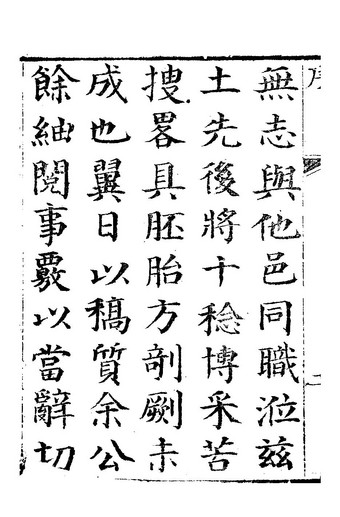 序
二
無志與他邑同職涖兹
土先後將十稔博采苦
搜畧具胚胎方剖劂未
成也翼日以稿質余公
餘紬閱事覈以當辭切